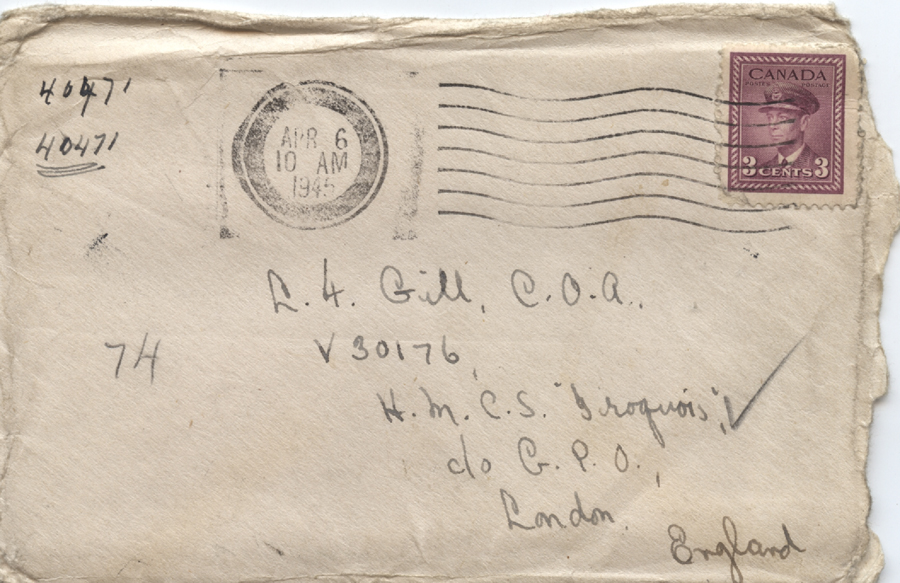 40471
40471
APR 6
10 AM
1945
CANADA
POSTES POSTAGE
3 CENTS 3
L. H. Gill, C.O.A.,
V 30176,
74
H.M.C.S. "Iroquois",
c/o G.P.O.,
London.
England